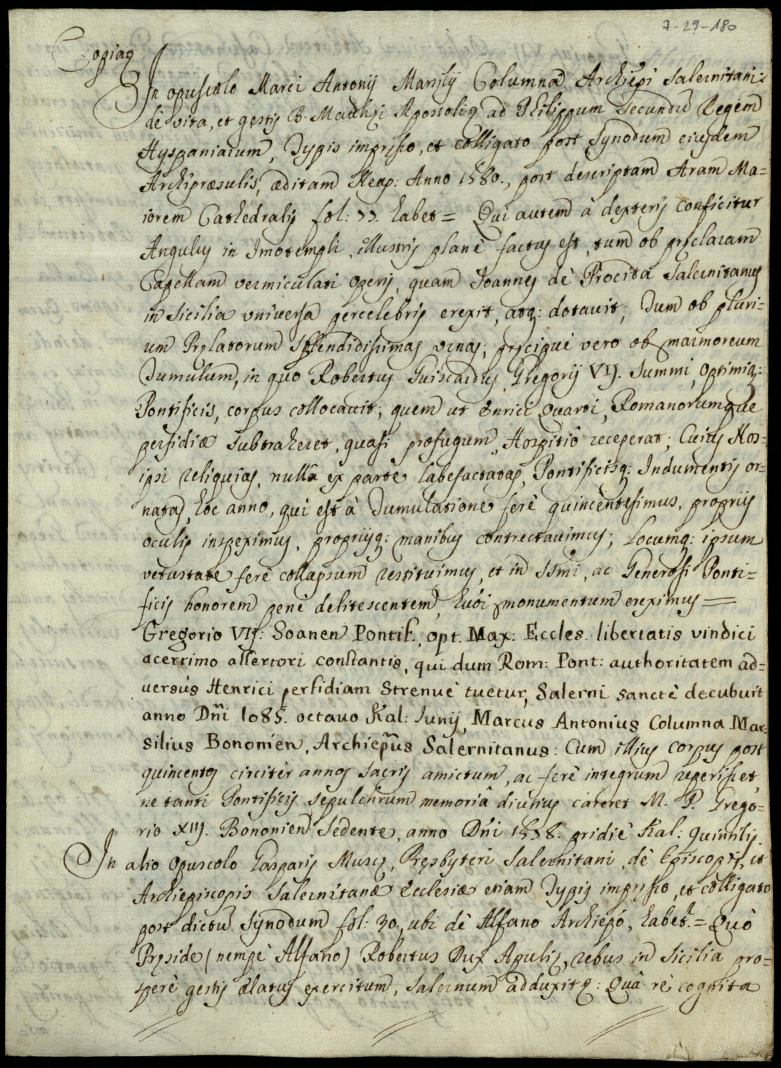 7-29-180
Copia
In opusculo Marci Antonij Marsilij Columnæ Archiepi Salernitani:
de vita, et gestis B. Matthæi Apostoli, ad Philippum Secundum Regem
Hyspaniarum, Typis impresso, et colligato post Synodum eiusdem
Archipræsulis, æditam Neap: Anno 1580., post descriptam Aram Ma=
iorem Cathedralis fol: 22. habet= Qui autem à dexteris conficitur
Angulus in Imotempli, illustris planè factus est, tum ob præclaram
Capellam vermiculati operis, quam Joannes dè Procita Salernitanus
in Sicilia vniversa percelebris erexit, atq: dotauit; Tum ob pluri=
um Prælatorum Splendidissimas vrnas; præcipuè vero ob marmoreum
Tumulum, in quo Robertus Guiscardus Gregorij VIJ. Summi, Optimiq:
Pontificis, corpus collocauit; quem ut Enrici Quarti, Romanorumque
perfidiæ subtraheret, quasi profugum, Hospitiò receperat; Cuius Nos
ipsi reliquias, nulla ex parte labefactatas, Pontificijsq: Indumentis or=
natas, hoc anno, qui est à Tumulatione ferè quincentesimus, proprijs
oculis inspeximus, proprijsq: manibus contrectauimus; Locumq: ipsum
vetustate ferè collapsum restituimus, et in SSmi, ac Generosi Ponti=
ficis honorem penè delitescentem, huic monumentum ereximus=
Gregorio VIJ: Soanen Pontif. opt. Max: Eccles. libertatis vindici
acerrimo assertori constantis, qui dum Rom: Pont: authoritatem ad=
versùs Henrici perfidiam Strenuè tuetur, Salerni sanctè decubuit
anno Dñi 1085. octauo Kal: Iunij, Marcus Antonius Columna Mar=
silius Bononien, Archiepũs Salernitanus: Cum illius corpus post
quincentos circitèr annos sacris amictum, ac ferè integrum reperisset
ne tanti Pontificis sepulchrum memoriâ diutius careret M. P. Grego=
rio XIIJ. Bononien Sedente, anno Dñi 1578. pridiè Kal: Quintilis
In alio opusculo Gasparis Muscæ, Presbyteri Salernitani, dè Episcopis, et
Archiepiscopis Salernitanæ Ecclesiæ etiam Typis impresso, et colligato
post dictũ Synodum fol: 30, ubi dè Alfano Archiepo, habet.= Quò
Præside (nempè Alfano) Robertus Dux Apuliæ, rebus in Sicilia pro=
sperè gestis elatus exercitum, Salernum adduxitq: Quà rè cognita